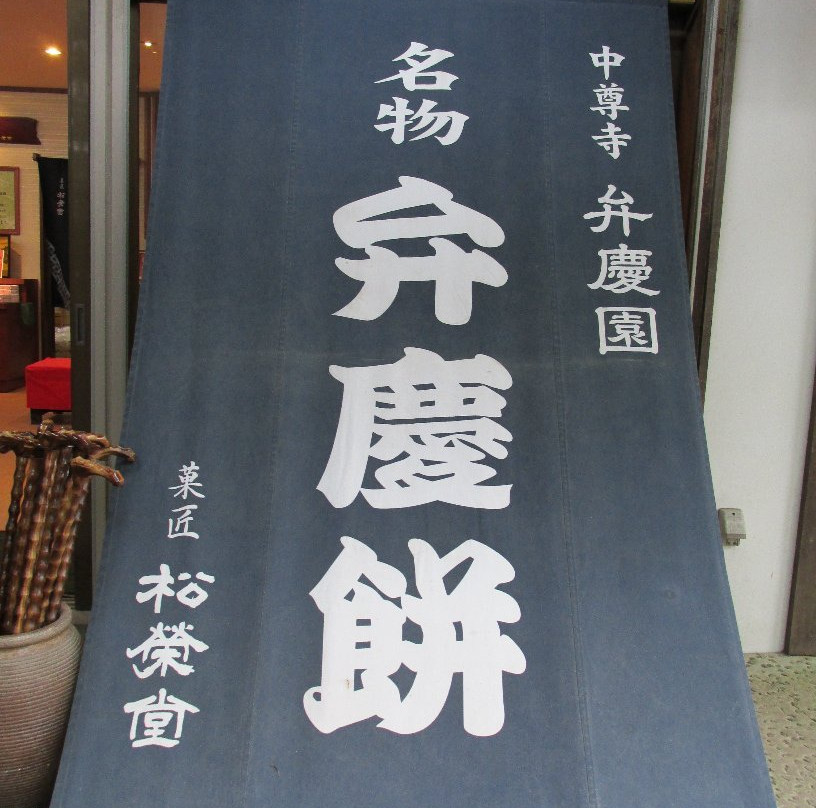 中尊寺 弁慶園
名物 弁慶餅
菓匠 松榮堂